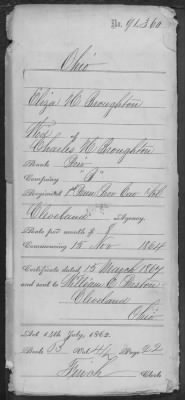 No. 91.360
Ohio
Eliza H Broughton
Wid of
Charles H Broughton
Rank Pri
Company "B"
Regiment 1st Tenn
Cleveland Agency.
Rate per month $ 8
Commencing 15 Nov 1864
Certificate dated 15 March 1867
and sent to William E Preston
Cleveland
Ohio
Act 14th July, 1862.
Book 53 Vol 4/2 Page 22
Finch Clerk